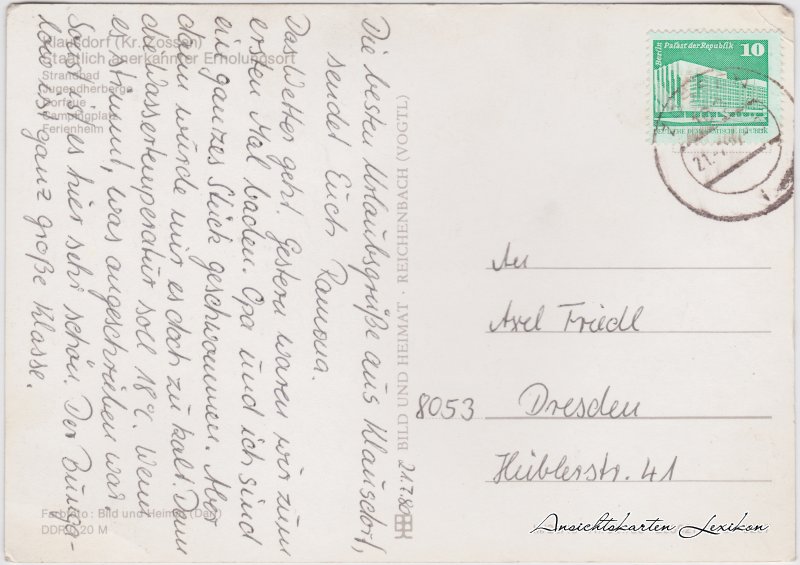 Klausdorf (Kr. Zossen)
Staatlich anerkannter Erholungsort
Strandbad
Jugendherberge
Dorfaue
Campingplatz
Ferienheim
Die besten Urlaubsgrüße aus Klausdorf,
sendet Euch Ramona.
Das Wetter geht. Gestern waren wir zum
ersten Mal baden. Opa und ich sind
ein ganzes Stück geschwommen. Aber
dann wurde mir es doch zu kalt. Denn
die Wassertemperatur soll 18°C. Wenn
es stimmt, was angeschrieben war.
Sonst ist es hier sehr schön. Der Bunga-
low ist ganz große Klasse.
Farbfoto: Bild und Heimat
DDR 0,20 M
BILD UND HEIMAT · REICHENBACH (VOGTL)
21.7.80
Berlin Palast der Republik
10
An
Axel Friedl
8053 Dresden
Hüblerstr. 41
Ansichtskarten Lexikon